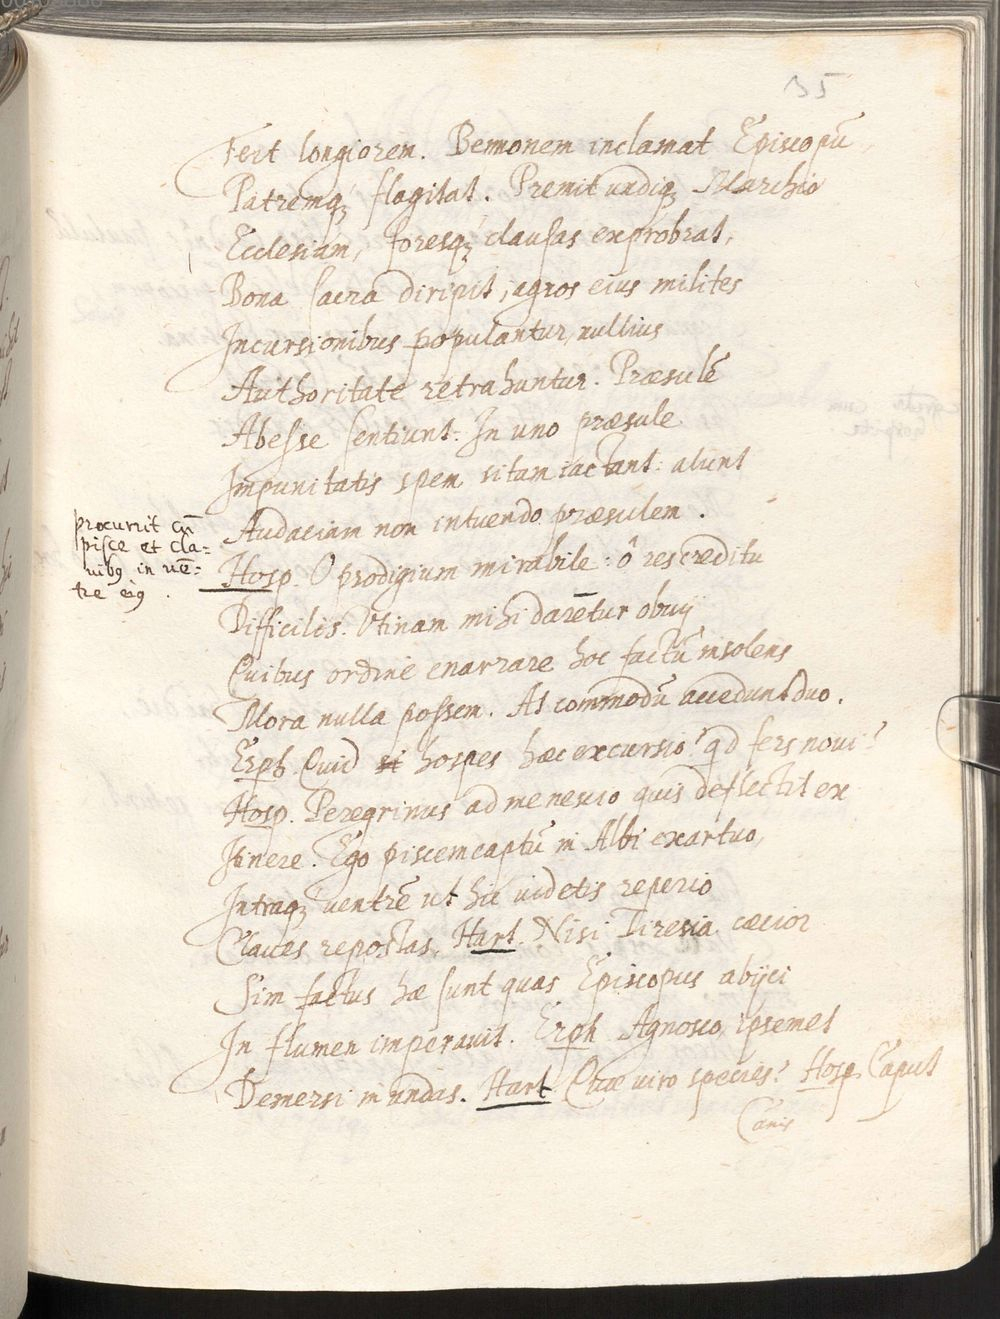 35
Fert longiorem. Bennonem inclamat Episcopũ,
Patremq₃ flagitat. Premit undiq₃ Marchio
Ecclesiam, foresq₃ clausas exprobrat,
Bona sacra diripit, agros eius milites
Incursionibus populantur, nullius
Authoritate retrahuntur. Præsulẽ
Abesse sentiunt: In uno præsule
Impunitatis spem sitam iactant: alunt
Audaciam non intuendo præsulem.
procurrit cũ
pisce et cla=
vibq in vẽ=
tre eiq.
Hosp. O prodigium mirabile: ô res creditu
Difficilis. Utinam mihi darẽtur obuij
Quibus ordine enarrare hoc factũ insolens
Mora nulla possem. At commodũ accedunt duo.
Erph. Quid hospes hæc excursio? qd fers noui?
Hosp. Peregrinus ad me nescio quis deflectit ex
Itinere. Ego piscem captũ in Albi exartuo,
Intraq₃ ventrẽ ut hic videtis reperio
Claues repostas. Hart. Nisi Tiresia cæcior
Sim factus hæ sunt quas Episcopus abijci
In flumen imperauit. Erph Agnosco, ipsemet
Demersi in undas. Hart Quæ viro species? Hosp. Caput
Canis